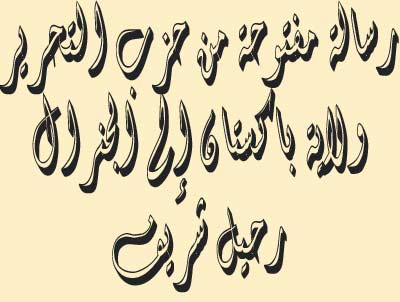 رسالة مفتوحة من حزب التحرير
ولاية باكستان إلى الجنرال
رحيل شريف